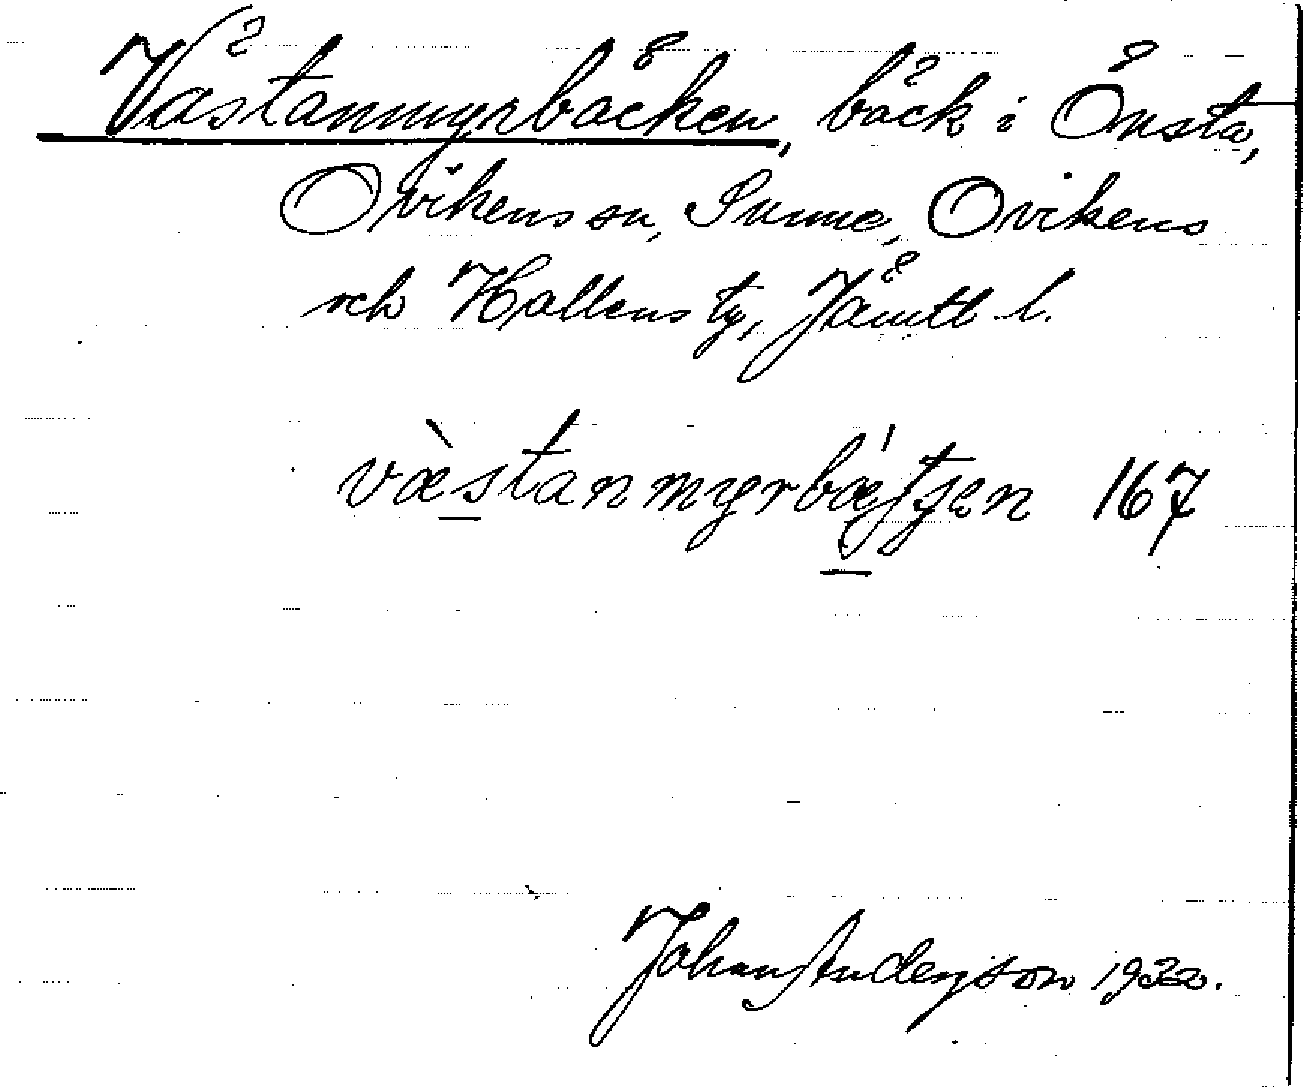 Västanmyrbäcken, bäck i Önsta,
Ovikens sn, Sunne, Ovikens
och Hallens tg, Jämtl l.
væ̀stanmyrbǽtʃen 167
Johan Anderson 1930.